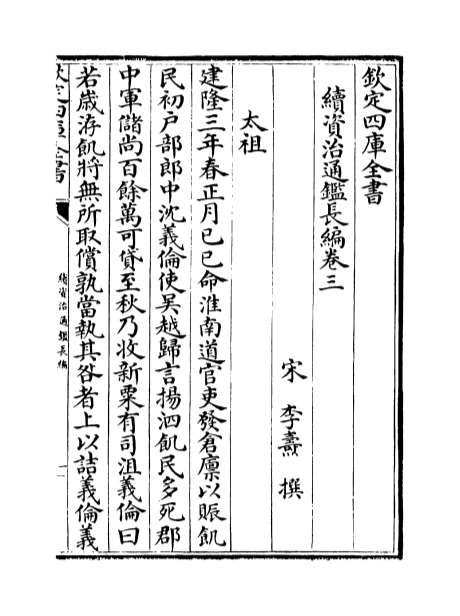 欽定四庫全書
續資治通鑑長編卷三
宋 李燾 撰
太祖
建隆三年春正月己巳命淮南道官吏發倉廪以賑飢
民初戸部郎中沈義倫使吴越歸言揚泗飢民多死郡
中軍儲尚百餘萬可貸至秋乃收新粟有司沮義倫曰
若歲洊飢將無所取償孰當執其咎者上以詰義倫義
欽定四庫全書
續資治通鑑長編
一